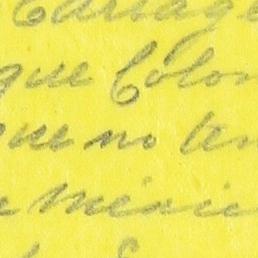 Cartage
que Colom
que no ten
a Méxic